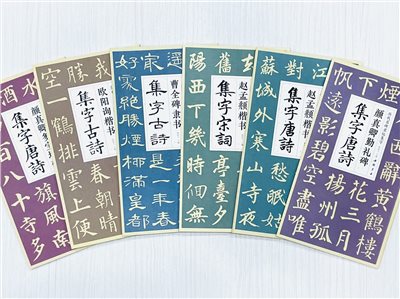 酒水
颜真卿
集字唐詩
旗風南
百八十寺多
勝我
欧阳询楷书
集字古詩
春朝晴
空一鶴排雲上便
曹全碑隶书
集字古詩
是一年春
好處絕勝煙柳滿皇都
舊
赵孟頫楷书
集字宋词
亭臺夕
陽西下幾時個無
對江
赵孟頫楷书
集字唐詩
愁眠姑
蘇城外寒山寺夜
下煙
颜真卿勤礼碑
集字唐詩
西辭黃鶴樓
花三月
揚州孤
帆遠影碧空盡唯